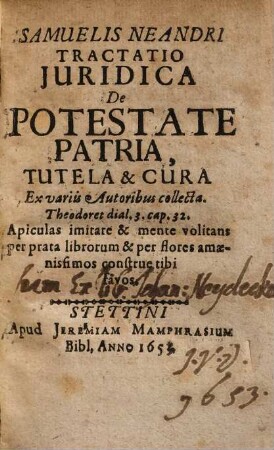 SAMUELIS NEANDRI
TRACTATIO
JURIDICA
De
POTESTATE
PATRIA,
TUTELA & CURA
Ex variis Autoribus collecta.
Theodoret dial. 3. cap. 32.
Apiculas imitare & mente volitans
per prata librorum & per flores amæ-
nissimos construe tibi
favos.
STETTINI
Apud JEREMIAM MAMPHRASIUM
Bibl, ANNO 1653
1653.